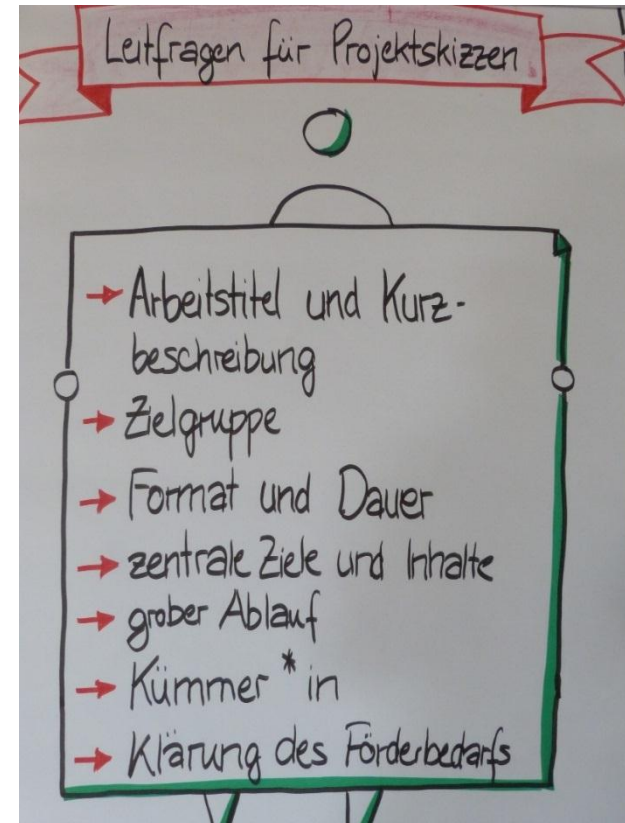 Leitfragen für Projektskizzen
→ Arbeitstitel und Kurz-
beschreibung
→ Zielgruppe
→ Format und Dauer
→ zentrale Ziele und Inhalte
→ grober Ablauf
→ Kümmer*in
→ Klärung des Förderbedarfs